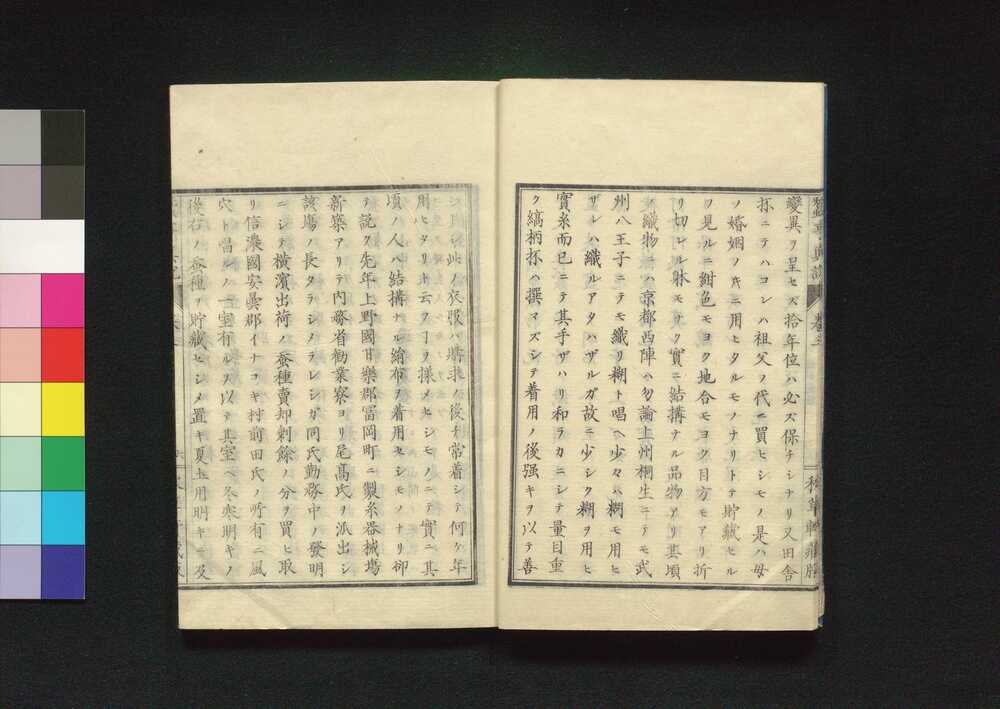 變異ヲ呈セズ拾年位ハ必ズ保チシナリ又田舎
抔ニテハコレハ祖父ノ代ニ買ヒシモノ是ハ母
ノ婚姻ノキニ用ヒタルモノナリトテ貯藏ヒル
ヲ見ルニ紺色モヨク地合モヨク目方モアリ折
リ切レル躰モナク實ニ結搆ナル品物アリ其頃
織物ニハ京都西陣ハ勿論上州桐生ニテモ武
州八王子ニテモ織リ糊ト唱ヘ少々ハ糊モ用ヒ
ザレハ織ルアタハザルガ故ニ少シク糊ヲ用ヒ
實糸而已ニテ其手ザハリ和ラカニシテ量目重
ク縞柄抔ハ撰マズシテ着用ノ後强キヲ以テ善
此ノ衣服ハ購求ノ後チ常着シテ何ケ年
用ヒタリト云フヿヲ樣メセシモノニテ實ニ其
頃ノ人ハ結搆ナル絹布ヲ着用セシモノナリ却
テ說ク先年上野國甘樂郡冨岡町ニ製糸器械場
新築アリテ内務省勸業寮ヨリ尾髙氏ヲ派出シ
該塲ノ長タラシメラレシガ同氏勤務中ノ發明
ニシテ橫濱出荷ノ蚕種賣却剩餘ノ分ヲ買ヒ取
リ信濃國安曇郡イナコキ村前田氏ノ所有ニ風
穴ト當ルノ一室有ルヲ以テ其室ヘ冬寒明キノ
後在ノ蚕種ヲ貯藏セシメ置キ夏土用明キニ及